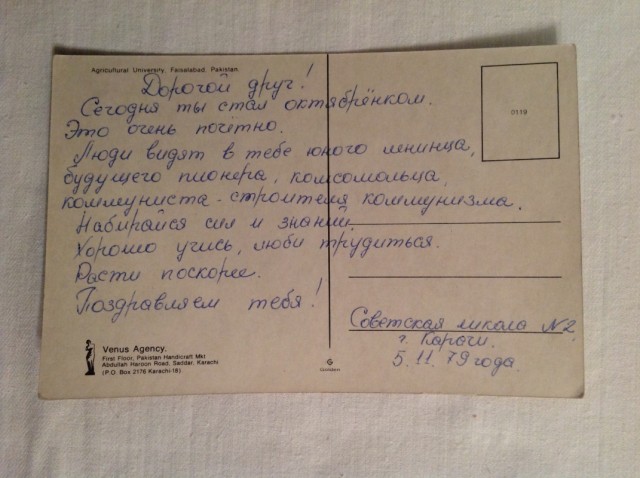 Agricultural University, Faisalabad. Pakistan.
Дорогой друг!
Сегодня ты стал октябрёнком.
Это очень почётно.
Люди видят в тебе юного ленинца,
будущего пионера, комсомольца,
коммуниста - строителя коммунизма.
Набирайся сил и знаний.
Хорошо учись, люби трудиться.
Расти поскорее.
Поздравляем тебя!
0119
Советская школа №2
г. Карачи.
5. 11. 79 года.
Venus Agency.
First Floor, Pakistan Handicraft Mkt
Abdullah Haroon Road, Saddar, Karachi
(P.O. Box 2176 Karachi-18)
G